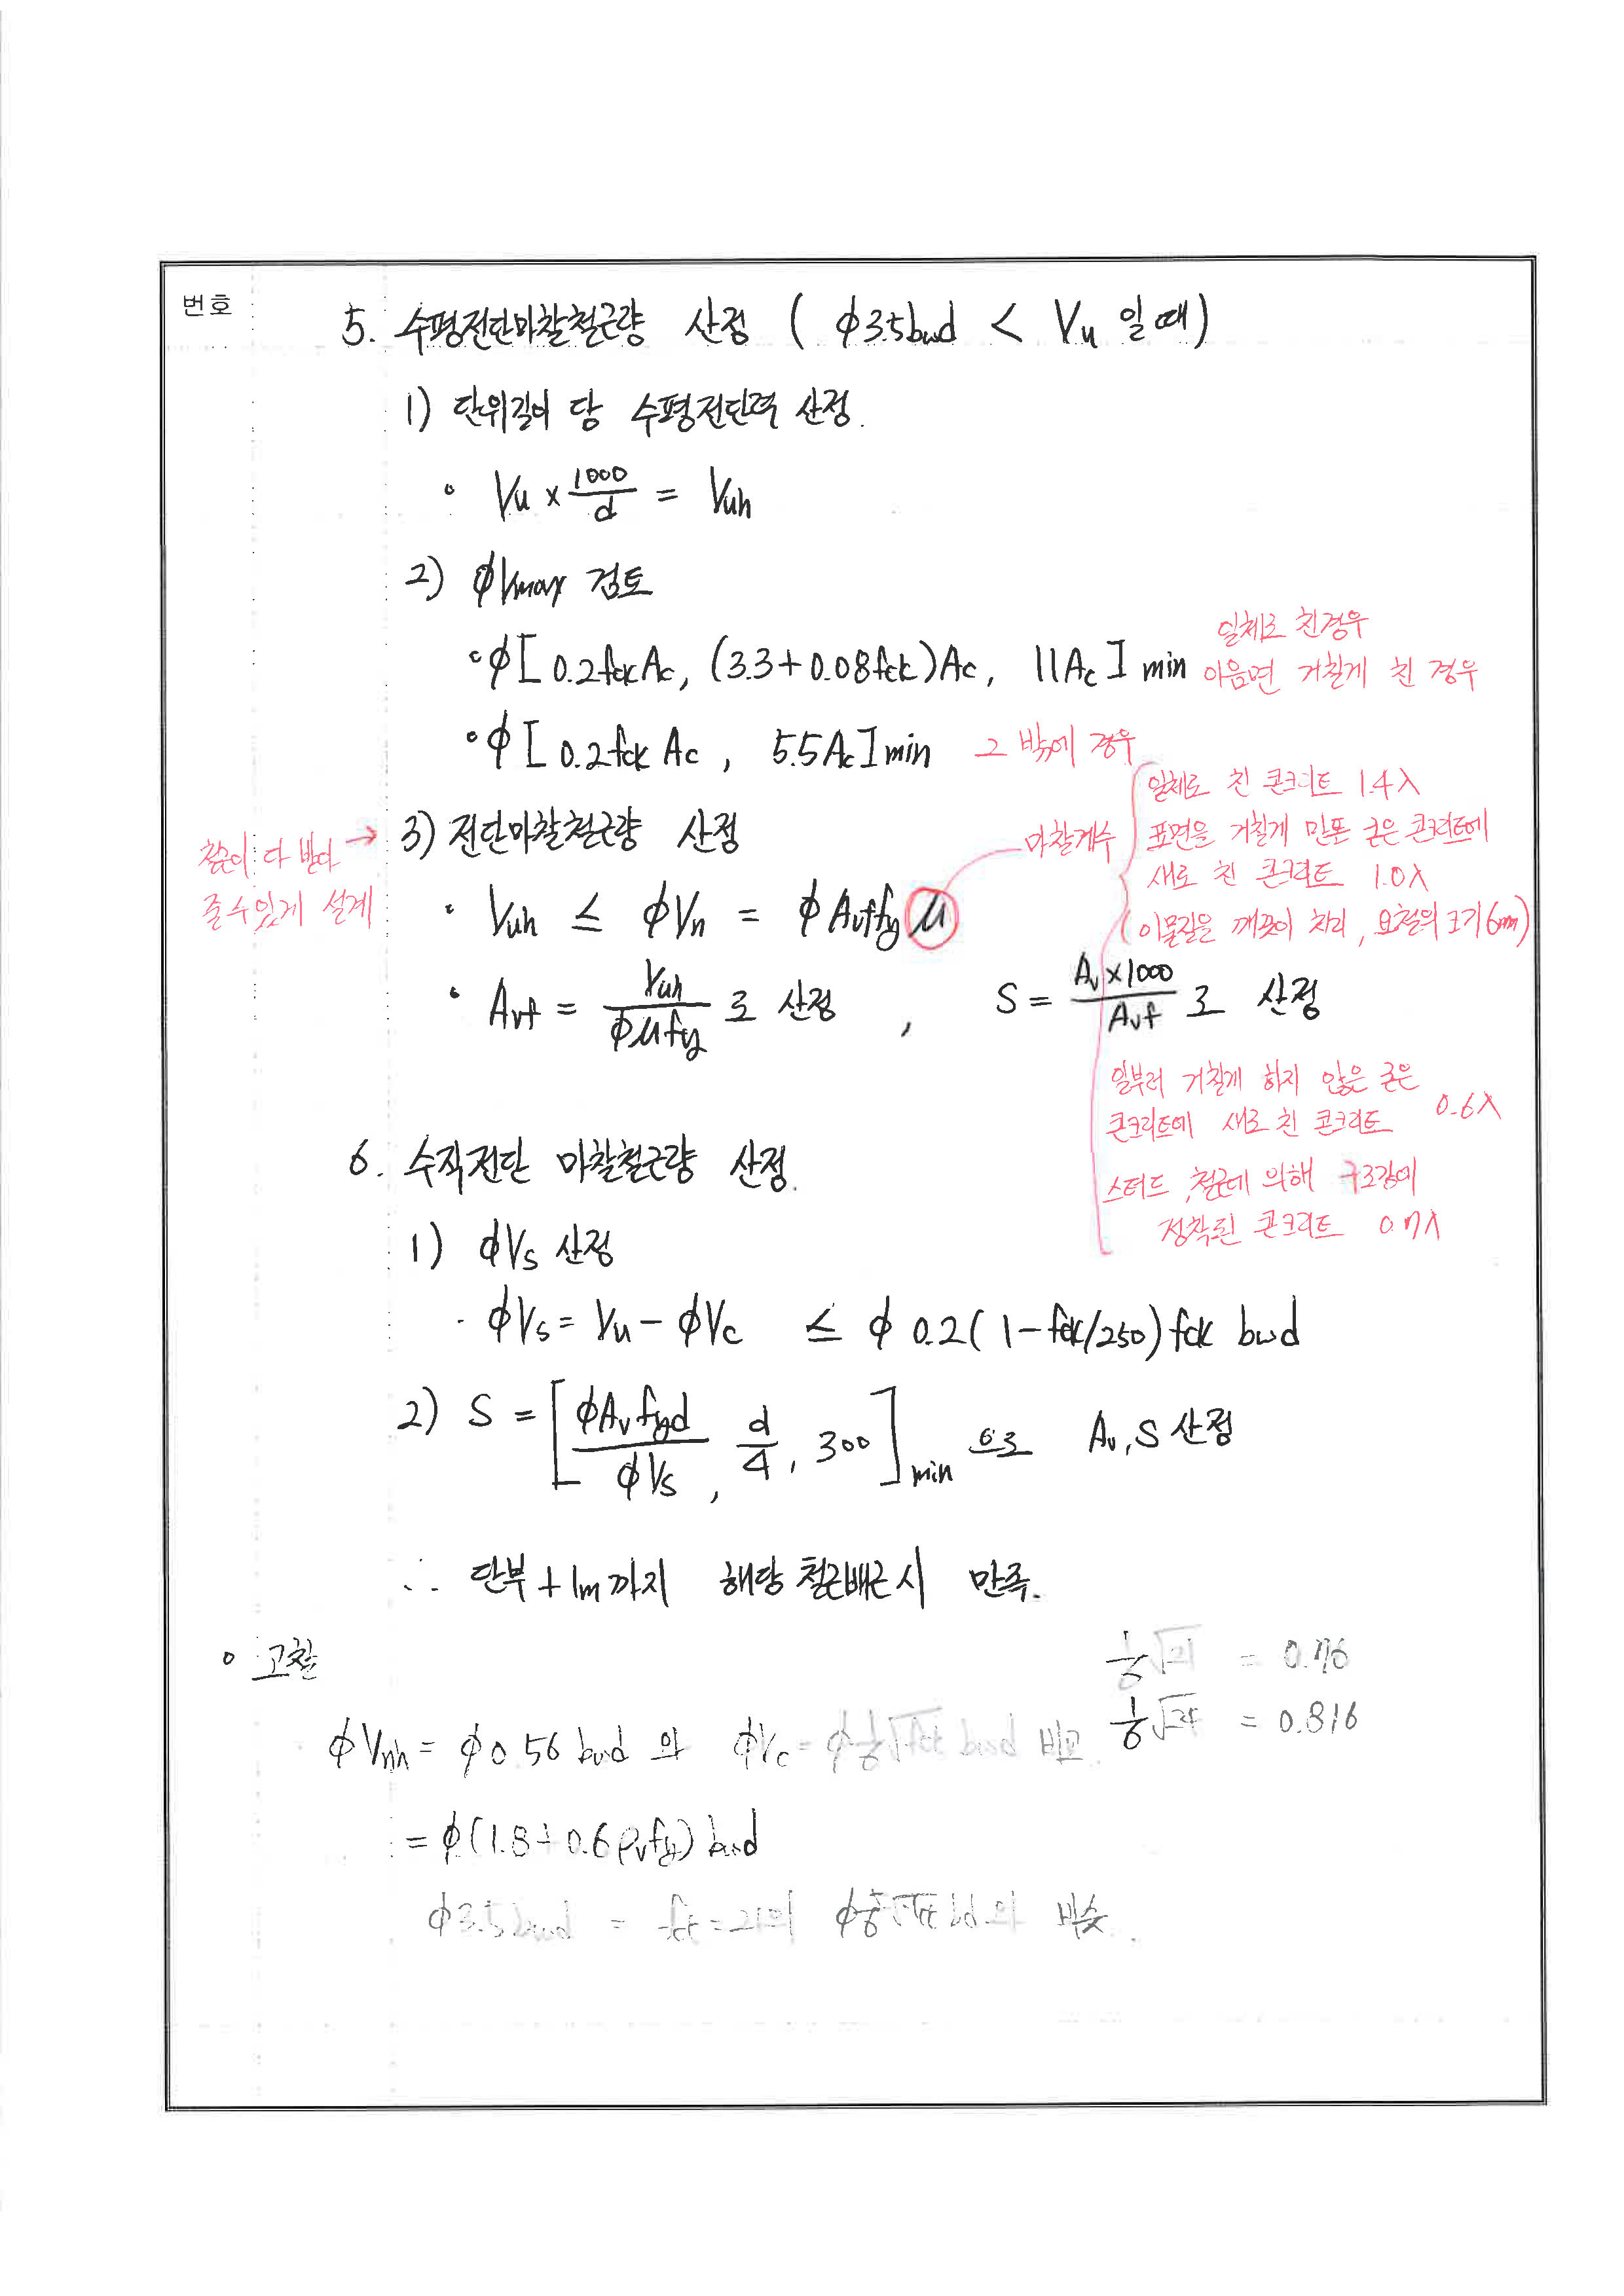 번호
5. 수평전단마찰철근량 산정 ( ϕ3.5bwd < Vu 일 때 )
1) 단위길이 당 수평전단력 산정.
∘ Vu × 1000/d = Vuh
2) ϕVmax 검토
∘ ϕ[ 0.2fckAc, (3.3+0.08fck)Ac, 11Ac ] min
일체로 친경우
이음면 거칠게 친 경우
∘ ϕ[ 0.2fck Ac , 5.5Ac ] min 그 밖에 경우
3) 전단마찰철근량 산정
철근이 다 받아 →
줄수있게 설계
· Vuh ≤ ϕVn = ϕ Avf fy μ
마찰계수
일체로 친 콘크리트 1.4λ
표면을 거칠게 만든 굳은 콘크리트에
새로 친 콘크리트 1.0λ
(이물질을 깨끗이 처리, 요철의 크기 6mm)
· Avf = Vuh/ϕμfy 로 산정 , S = Av×1000/Avf 로 산정
일부러 거칠게 하지 않은 굳은
콘크리트에 새로 친 콘크리트 0.6λ
스터드, 철근에 의해 구조강에
정착된 콘크리트 0.7λ
6. 수직전단 마찰철근량 산정.
1) ϕVs 산정
· ϕVs = Vu - ϕVc ≤ ϕ 0.2( 1-fck/250) fck bwd
2) S = [ ϕAv fyd/ϕVs , d/4 , 300 ] min 으로 Av, S 산정
∴ 단부 + 1m 까지 해당 철근배근시 만족.
∘ 고찰
1/6 √21 = 0.76
1/6 √24 = 0.816
ϕVnh = ϕ0.56 bwd 와 ϕVc = ϕ1/6√fck bwd 비교.
= ϕ(1.8+0.6ρvfy) bwd
ϕ3.5bwd = fck=21의 bd와 비슷.